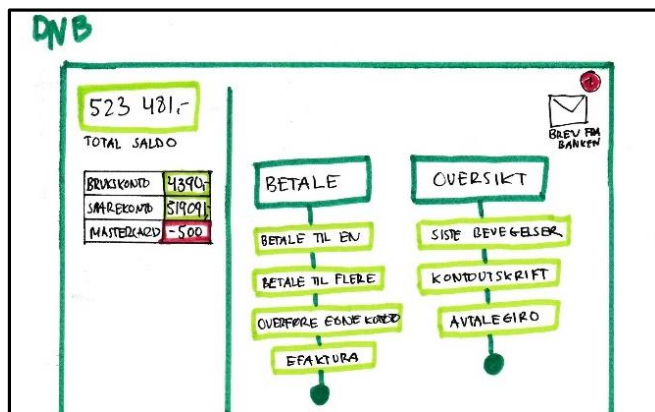 DNB
523 481,-
TOTAL SALDO
BRUKSKONTO 4390,-
SPAREKONTO 519091,-
MASTERCARD -500
BREV FRA
BANKEN
BETALE
BETALE TIL EN
BETALE TIL FLERE
OVERFØRE EGNE KONTO
EFAKTURA
OVERSIKT
SISTE BEVEGELSER
KONTOUTSKRIFT
AVTALEGIRO